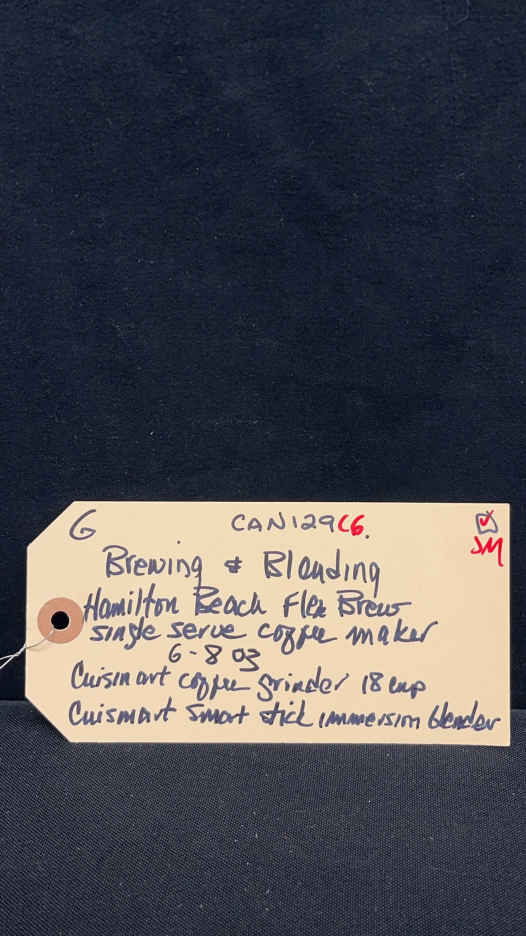 G CAN129C6.
JM
Brewing & Blending
Hamilton Beach Flex Brew
single serve coffee maker
6-8 oz
Cuisinart coffee grinder 18 cup
Cuisinart Smart stick immersion blender